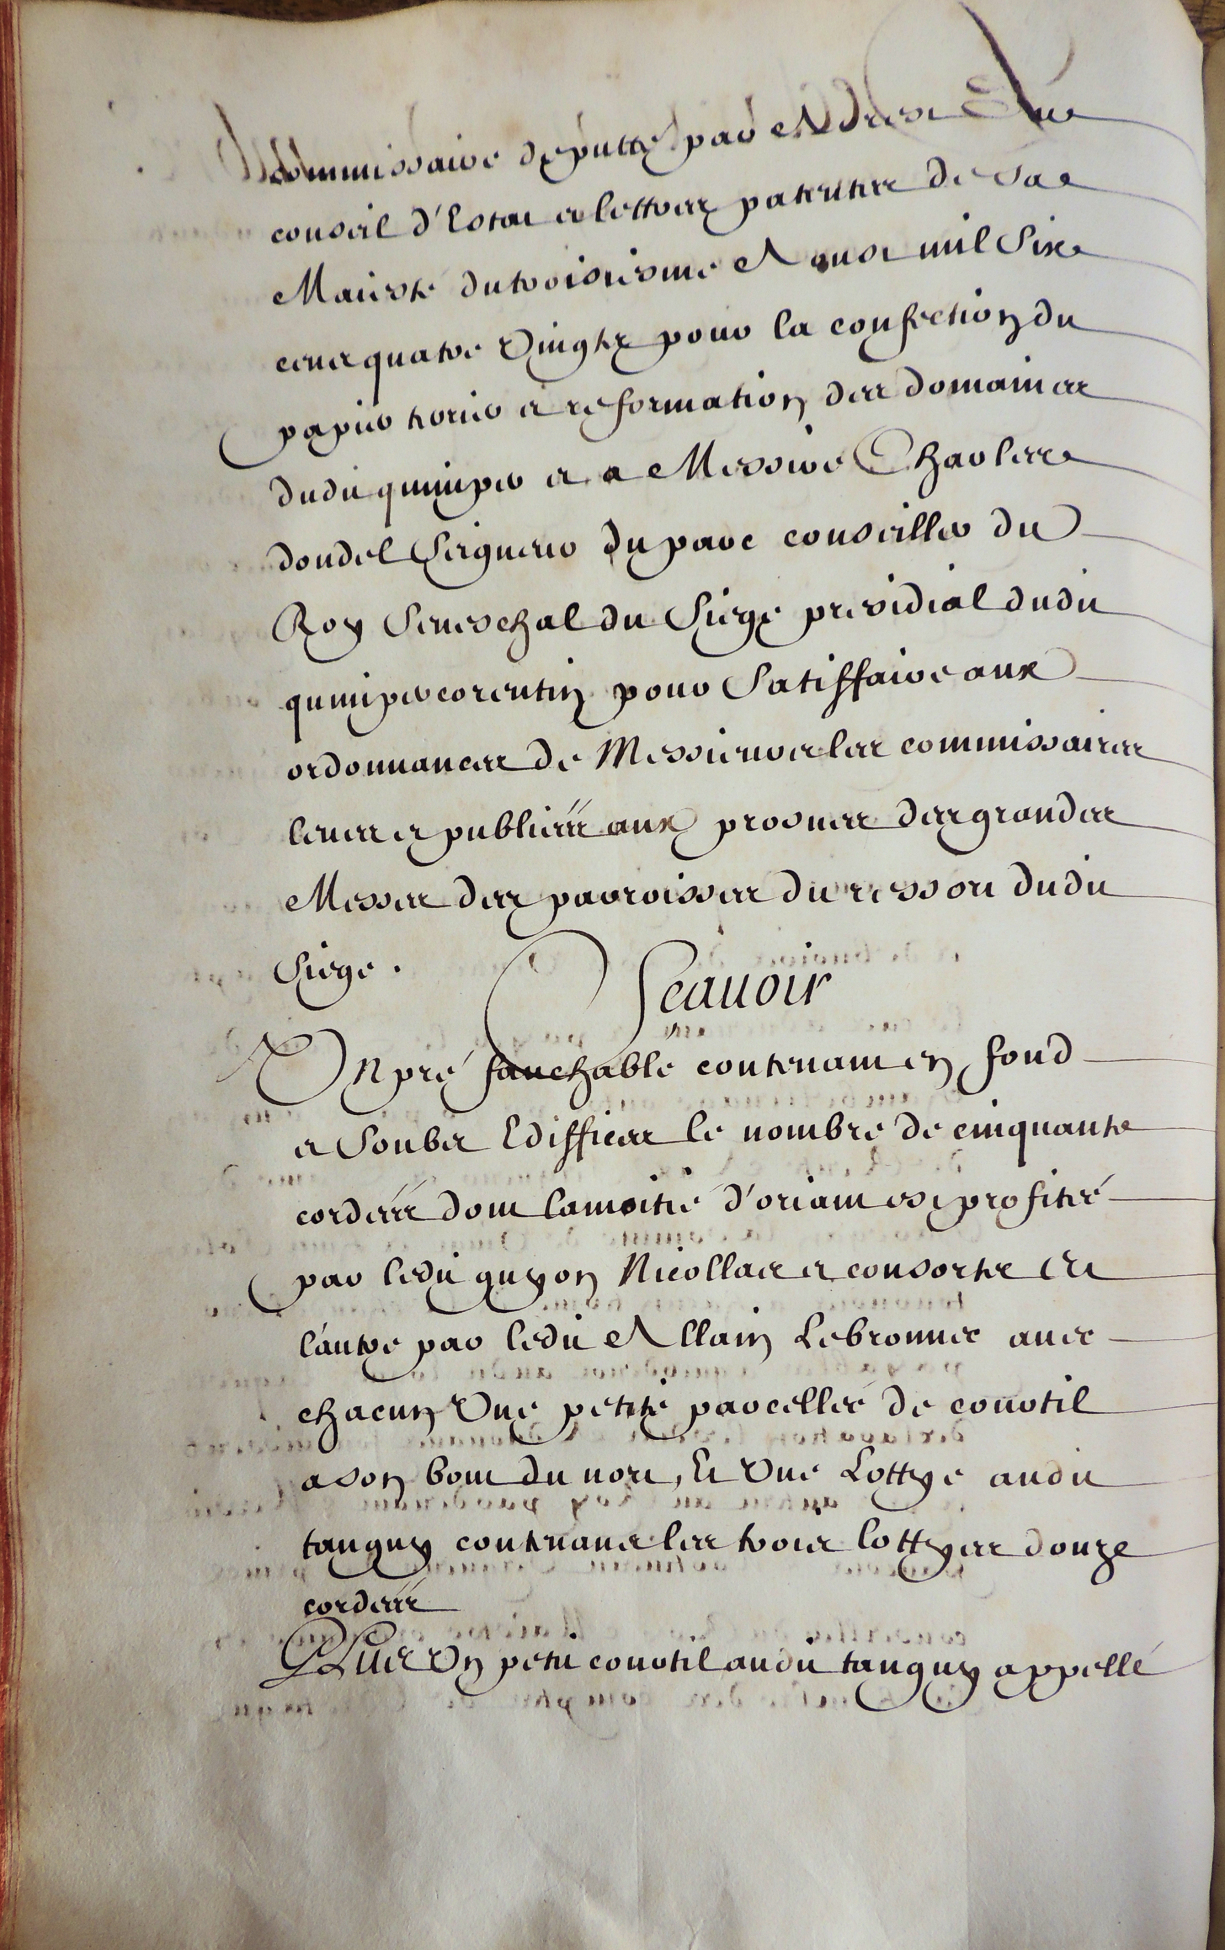 commissaire deputté par Arrest Du
conseil d'Estat et lettres patentes de Sa
Maiesté du troisiesme Aoust mil Six
cent quatre Vingts pour la confection du
papier terrier et reformation des domaines
dudit quimper et a Messire Charles
doudel Seigneur du parc conseiller du
Roy Seneschal du Siege presidial dudit
quimpercorentin pour Satisffaire aux
ordonnances de Messieurs les commissaires
leues et publiées aux prosnes des grandes
Messes des parroisses du ressort dudit
Siege.
Scauoir
Un pré fauchable contenant en fond
et Soubs Ediffices le nombre de cinquante
cordées dont la moitié d'oriant est profitté
par ledit guyon Nicollas et consorts Et
l'autre par ledit Allain Lebronnec avec
chacun Une petite parcelle de courtil
a son bout du nort, Et Une Lottye audit
tanguy contenants les trois lottyes douze
cordées
Plus Un petit courtil audit tanguy appellé